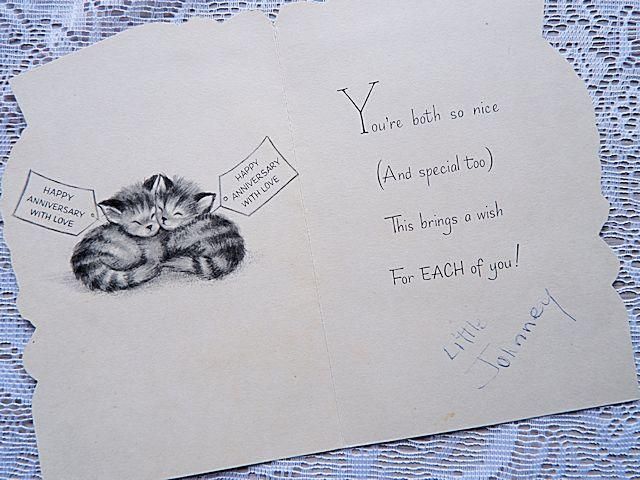 HAPPY
ANNIVERSARY
WITH LOVE
HAPPY
ANNIVERSARY
WITH LOVE
You're both so nice
(And special too)
This brings a wish
For EACH of you!
Little
Johnney